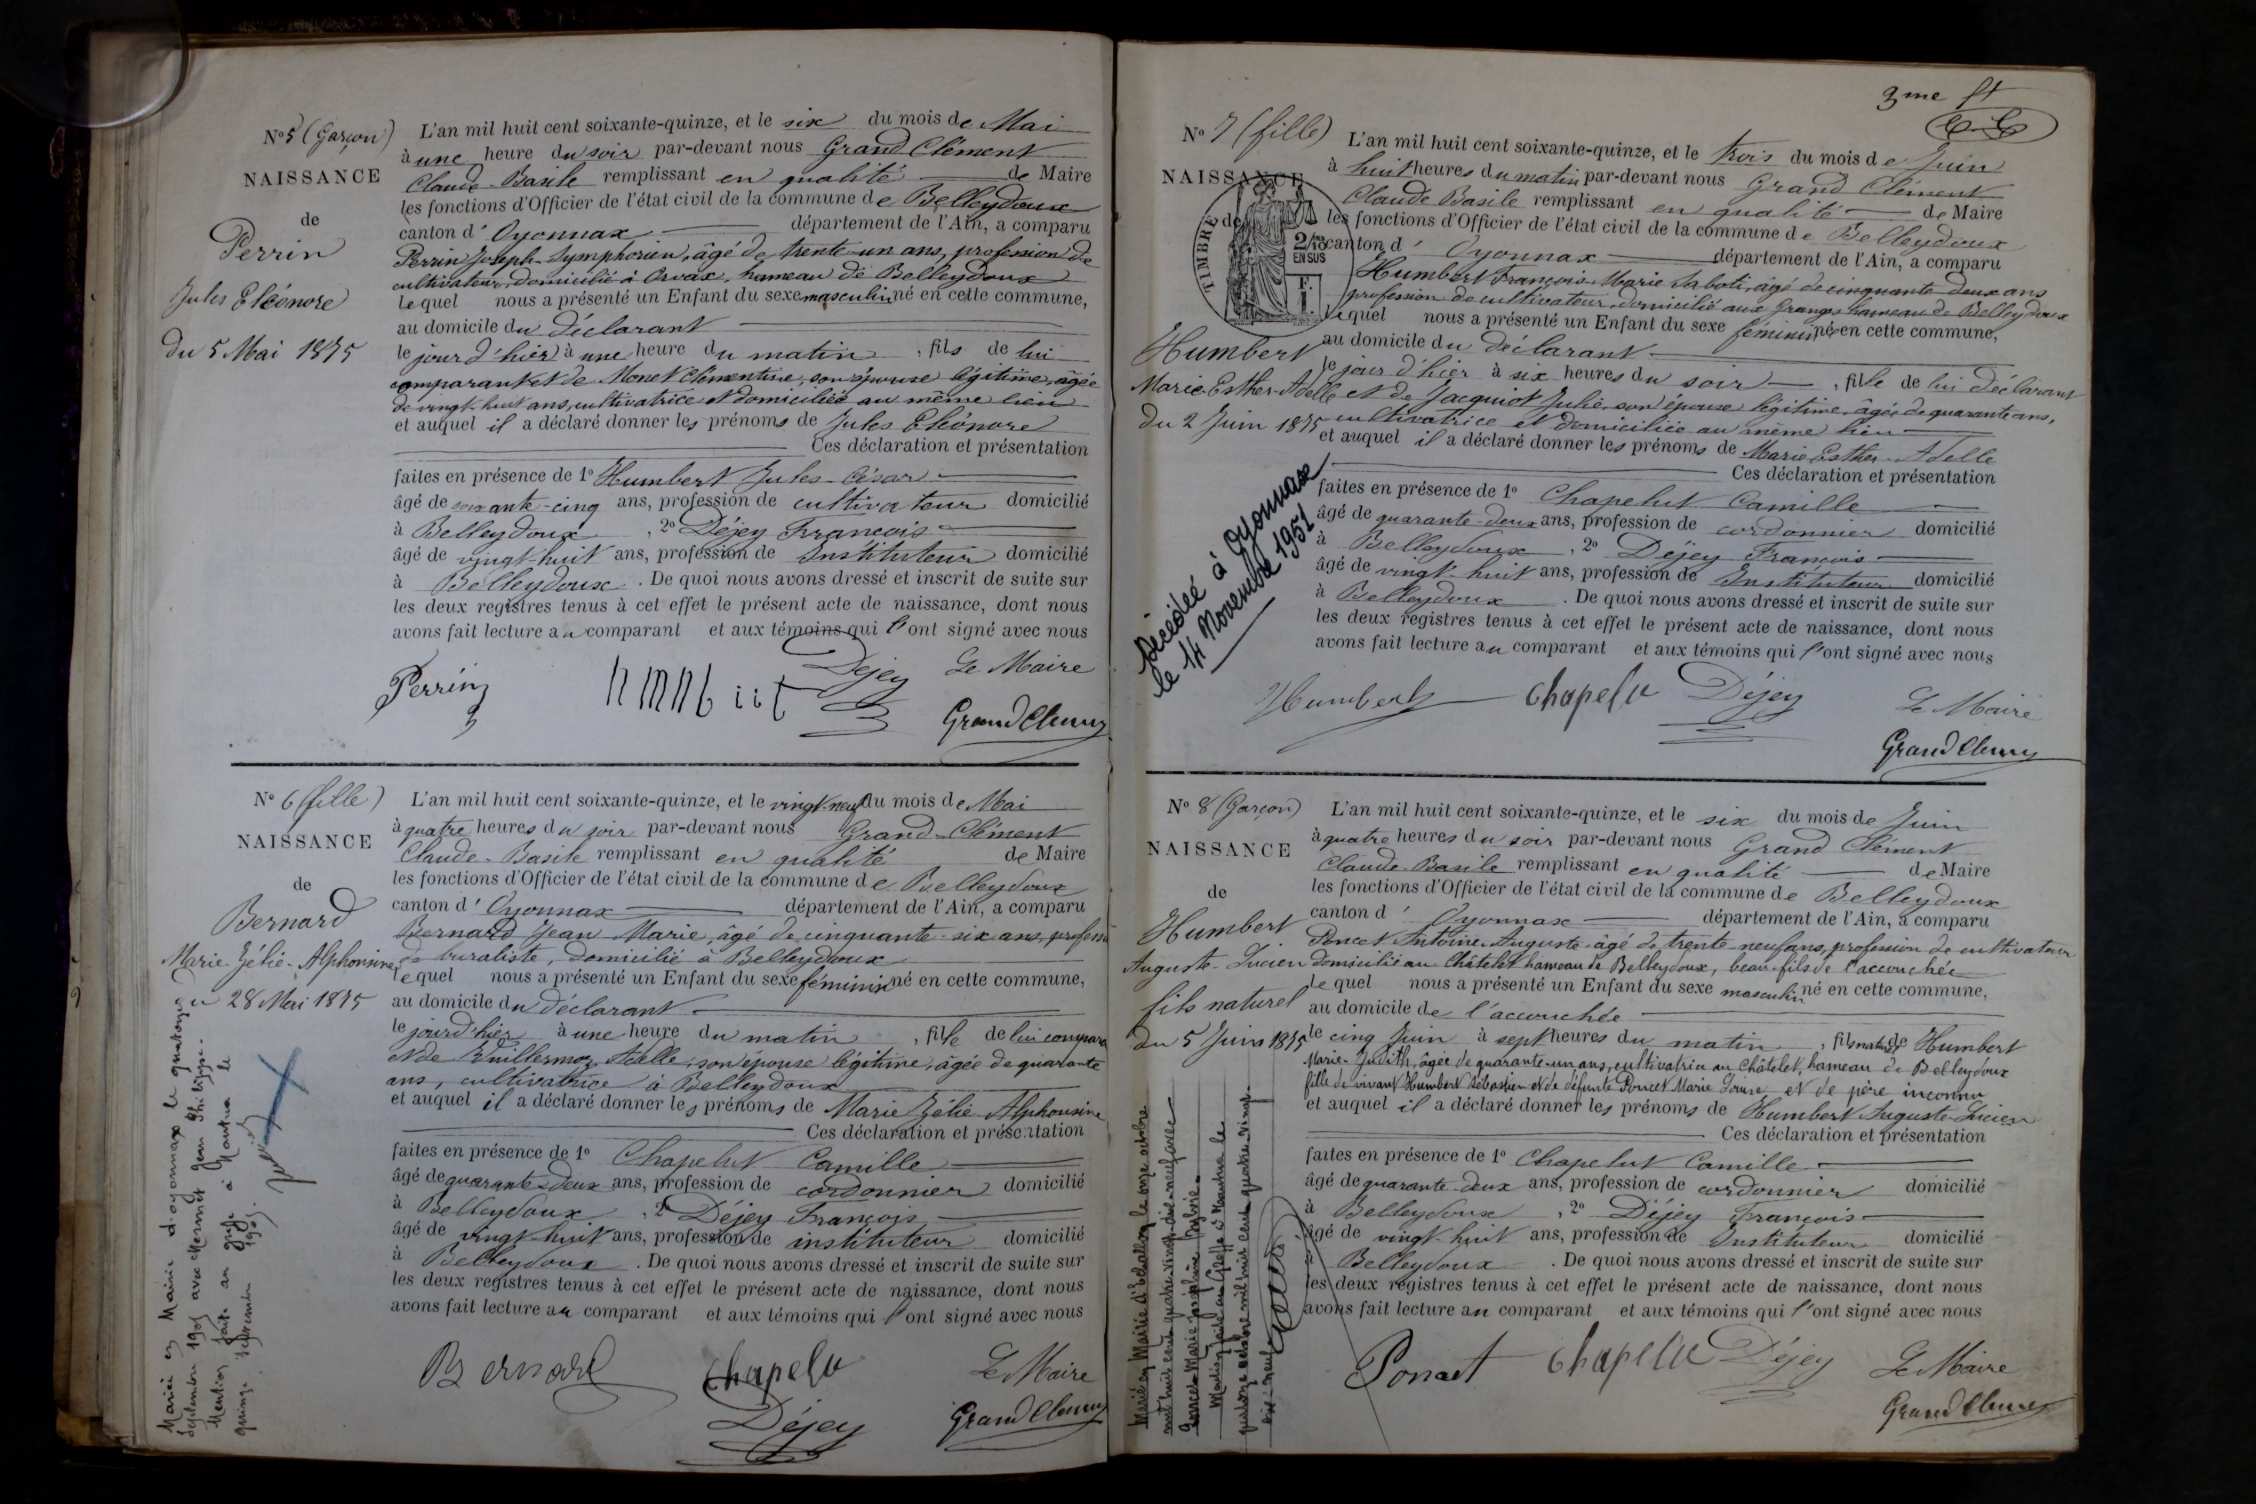 N° 5 (Garçon)
NAISSANCE
de
Perrin
Jules Eléonore
du 5 Mai 1875
L'an mil huit cent soixante-quinze, et le six du mois de Mai
à une heure du soir par-devant nous Grand Clément
Claude-Basile remplissant en qualité de Maire
les fonctions d'Officier de l'état civil de la commune de Belleydoux
canton d'Oyonnax département de l'Ain, a comparu
Perrin Joseph-Symphorien, âgé de trente-un ans, profession de
cultivateur, domicilié à Orvax, hameau de Belleydoux
lequel nous a présenté un Enfant du sexe masculin né en cette commune,
au domicile du déclarant
le jour d'hier à une heure du matin, fils de lui
comparant et de Monet Clémentine, son épouse légitime, âgée
de vingt-huit ans, cultivatrice et domiciliée au même lieu
et auquel il a déclaré donner les prénoms de Jules Eléonore
Ces déclaration et présentation
faites en présence de 1° Humbert Jules-César
âgé de soixante-cinq ans, profession de cultivateur domicilié
à Belleydoux, 2° Déjey François
âgé de vingt-huit ans, profession de Instituteur domicilié
à Belleydoux. De quoi nous avons dressé et inscrit de suite sur
les deux registres tenus à cet effet le présent acte de naissance, dont nous
avons fait lecture au comparant et aux témoins qui l'ont signé avec nous
Perrin Déjey Le Maire
Grand Clément
N° 6 (fille)
NAISSANCE
de
Bernard
Marie-Zélie-Alphonsine
du 28 Mai 1875
L'an mil huit cent soixante-quinze, et le vingt-neuf du mois de Mai
à quatre heures du soir par-devant nous Grand-Clément
Claude-Basile remplissant en qualité de Maire
les fonctions d'Officier de l'état civil de la commune de Belleydoux
canton d'Oyonnax département de l'Ain, a comparu
Bernard Jean Marie, âgé de cinquante-six ans, profession
de buraliste, domicilié à Belleydoux
lequel nous a présenté un Enfant du sexe féminin né en cette commune,
au domicile du déclarant
le jour d'hier à une heure du matin, fille de lui comparant
et de Guillermoz Adelle, son épouse légitime, âgée de quarante
ans, cultivatrice à Belleydoux
et auquel il a déclaré donner les prénoms de Marie Zélie-Alphonsine
Ces déclaration et présentation
faites en présence de 1° Chapelut Camille
âgé de quarante-deux ans, profession de cordonnier domicilié
à Belleydoux, 2° Déjey François
âgé de vingt-huit ans, profession de instituteur domicilié
à Belleydoux. De quoi nous avons dressé et inscrit de suite sur
les deux registres tenus à cet effet le présent acte de naissance, dont nous
avons fait lecture au comparant et aux témoins qui l'ont signé avec nous
Bernard Chapelu Le Maire
Déjey Grand Clément
Mariée en Mairie d'Oyonnax le quatorze
septembre 1905 avec Mermet Jean Philippe.
Mention faite au greffe à Nantua le
quinze septembre 1905.
3me ft
N° 7 (fille)
NAISSANCE
de
TIMBRE
2/10
EN SUS
F. 1.
Humbert
Marie-Esther-Adelle
du 2 Juin 1875
L'an mil huit cent soixante-quinze, et le trois du mois de Juin
à huit heures du matin par-devant nous Grand Clément
Claude Basile remplissant en qualité de Maire
les fonctions d'Officier de l'état civil de la commune de Belleydoux
canton d'Oyonnax département de l'Ain, a comparu
Humbert François-Marie Saboti, âgé de cinquante-deux ans
profession de cultivateur, domicilié aux Granges hameau de Belleydoux
lequel nous a présenté un Enfant du sexe féminin né en cette commune,
au domicile du déclarant
le jour d'hier à six heures du soir, fille de lui déclarant
et de Jacquiot Julie, son épouse légitime, âgée de quarante ans,
cultivatrice et domiciliée au même lieu
et auquel il a déclaré donner les prénoms de Marie Esther-Adelle
Ces déclaration et présentation
faites en présence de 1° Chapelut Camille
âgé de quarante-deux ans, profession de cordonnier domicilié
à Belleydoux, 2° Déjey François
âgé de vingt-huit ans, profession de Instituteur domicilié
à Belleydoux. De quoi nous avons dressé et inscrit de suite sur
les deux registres tenus à cet effet le présent acte de naissance, dont nous
avons fait lecture au comparant et aux témoins qui l'ont signé avec nous
Humbert Chapelu Déjey Le Maire
Grand Clément
Décédée à Oyonnax
le 14 Novembre 1951
N° 8 (Garçon)
NAISSANCE
de
Humbert
Auguste-Lucien
fils naturel
du 5 Juin 1875
L'an mil huit cent soixante-quinze, et le six du mois de Juin
à quatre heures du soir par-devant nous Grand Clément
Claude-Basile remplissant en qualité de Maire
les fonctions d'Officier de l'état civil de la commune de Belleydoux
canton d'Oyonnax département de l'Ain, a comparu
Poncet Antoine Auguste âgé de trente-neuf ans, profession de cultivateur
domicilié au Châtelet hameau de Belleydoux, beau-fils de l'accouchée
lequel nous a présenté un Enfant du sexe masculin né en cette commune,
au domicile de l'accouchée
le cinq Juin à sept heures du matin, fils naturel de Humbert
Marie-Judith, âgée de quarante-un ans, cultivatrice au Châtelet, hameau de Belleydoux
fille de vivant Humbert Sébastien et de défunte Poncet Marie Louise et de père inconnu
et auquel il a déclaré donner les prénoms de Humbert Auguste-Lucien
Ces déclaration et présentation
faites en présence de 1° Chapelut Camille
âgé de quarante-deux ans, profession de cordonnier domicilié
à Belleydoux, 2° Déjey François
âgé de vingt-huit ans, profession de Instituteur domicilié
à Belleydoux. De quoi nous avons dressé et inscrit de suite sur
les deux registres tenus à cet effet le présent acte de naissance, dont nous
avons fait lecture au comparant et aux témoins qui l'ont signé avec nous
Poncet Chapelu Déjey Le Maire
Grand Clément
Marié en Mairie d'Echallon le onze octobre
mil huit cent quatre-vingt-dix-neuf avec
Poncet Marie Joséphine Sylvie.
Mention faite au Greffe à Nantua le
quatorze octobre mil huit cent quatre-vingt-
dix-neuf